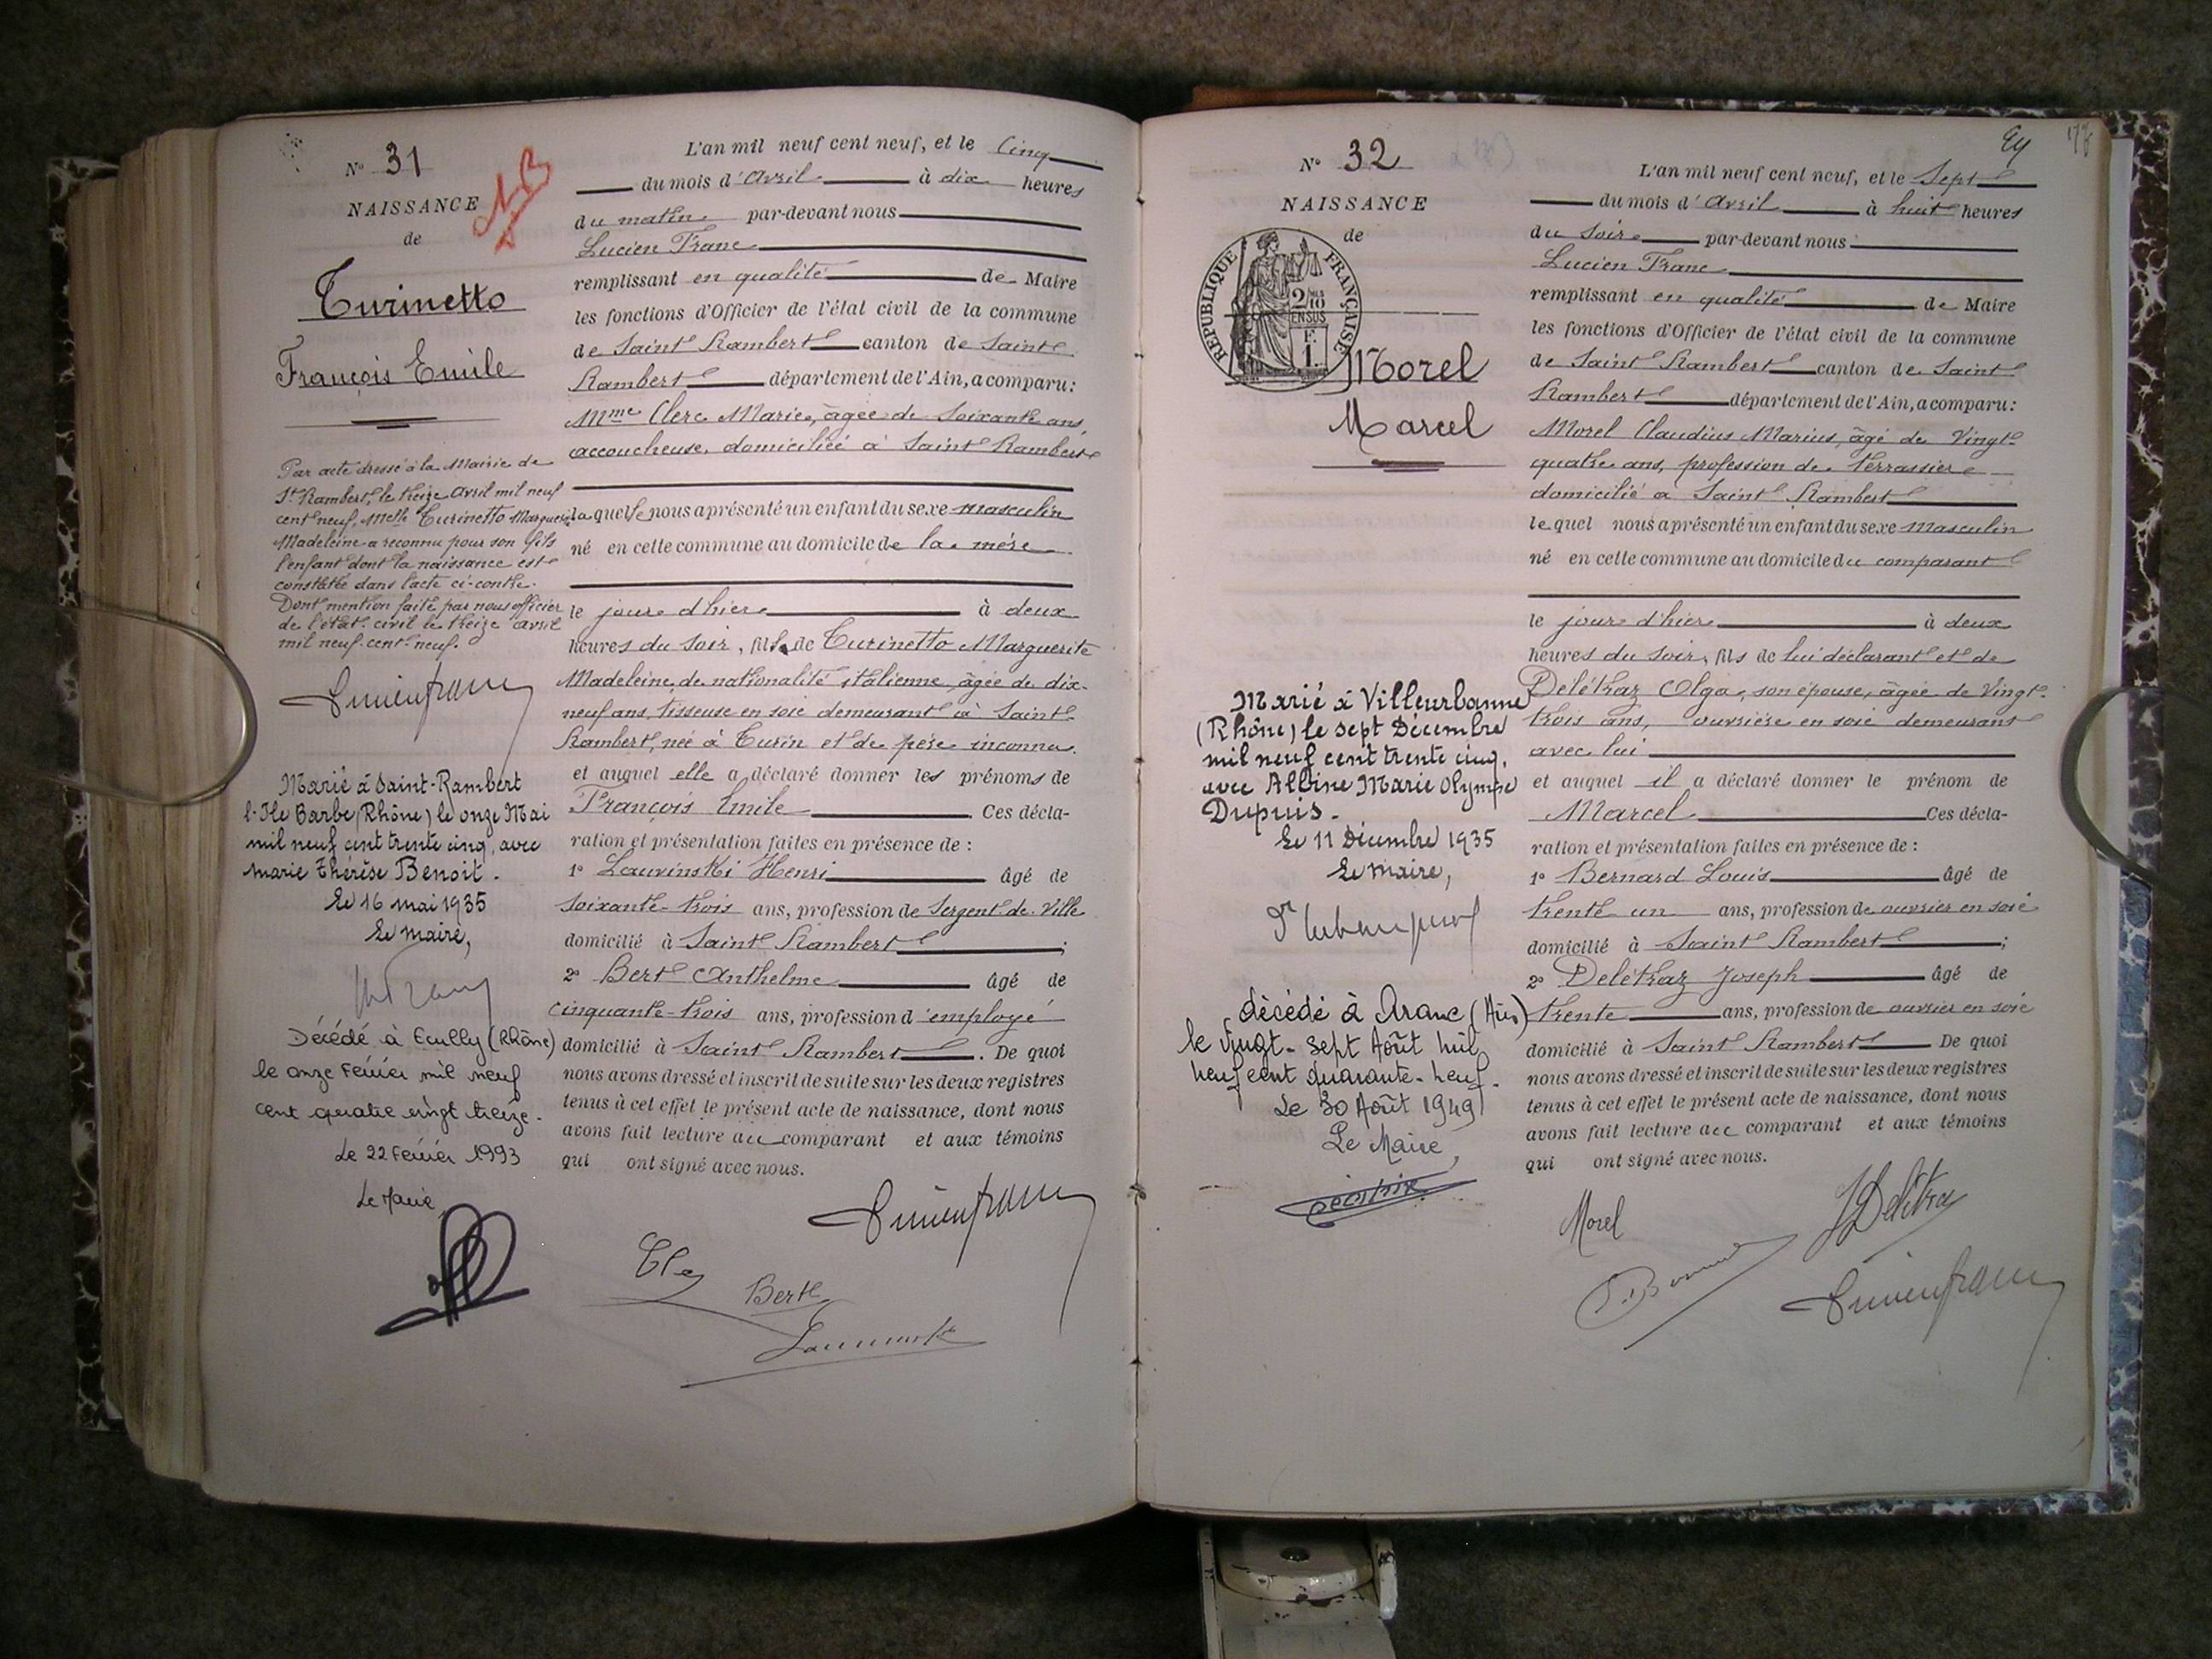 N° 31
NAISSANCE
de
Turinetto
François Emile
Par acte dressé à la Mairie de
St Rambert, le treize avril mil neuf
cent neuf, Melle Turinetto Marguerite
Madeleine a reconnu pour son fils
l'enfant dont la naissance est
constatée dans l'acte ci-contre.
Dont mention faite par nous officier
de l'état-civil le treize avril
mil neuf-cent-neuf.
Lucien Franc
Marié à Saint-Rambert
l'Ile Barbe (Rhône) le onze Mai
mil neuf cent trente cinq, avec
Marie Thérèse Benoit.
Le 16 mai 1935
Le maire,
Décédé à Ecully (Rhône)
le onze Février mil neuf
cent quatre vingt treize.
Le 22 Février 1993
Le Maire,
L'an mil neuf cent neuf, et le Cinq
du mois d'Avril à dix heures
du matin par-devant nous
Lucien Franc
remplissant en qualité de Maire
les fonctions d'Officier de l'état civil de la commune
de Saint Rambert canton de Saint
Rambert département de l'Ain, a comparu:
Mme Clerc Marie, âgée de soixante ans,
accoucheuse, domiciliée à Saint Rambert
la quelle nous a présenté un enfant du sexe masculin
né en cette commune au domicile de la mère
le jour d'hier à deux
heures du soir, fils de Turinetto Marguerite
Madeleine, de nationalité italienne, âgée de dix-
neuf ans, tisseuse en soie demeurant à Saint
Rambert, née à Turin et de père inconnu.
et auquel elle a déclaré donner les prénoms de
François Emile Ces décla-
ration et présentation faites en présence de :
1° Lauvinski Henri âgé de
soixante-trois ans, profession de Sergent-de-Ville
domicilié à Saint Rambert ;
2° Bert Anthelme âgé de
cinquante-trois ans, profession d'employé
domicilié à Saint Rambert. De quoi
nous avons dressé et inscrit de suite sur les deux registres
tenus à cet effet le présent acte de naissance, dont nous
avons fait lecture au comparant et aux témoins
qui ont signé avec nous.
Lucien Franc
Bert
N° 32
NAISSANCE
de
RÉPUBLIQUE FRANÇAISE
2/10
EN SUS
F.
1
Morel
Marcel
Marié à Villeurbanne
(Rhône) le sept Décembre
mil neuf cent trente cinq,
avec Albine Marie Olympe
Dupuis.
Le 11 Décembre 1935
Le maire,
décédé à Aranc (Ain)
le Vingt-sept Août mil
neuf cent quarante-neuf.
Le 30 Août 1949
Le Maire,
L'an mil neuf cent neuf, et le Sept
du mois d'Avril à huit heures
du soir par-devant nous
Lucien Franc
remplissant en qualité de Maire
les fonctions d'Officier de l'état civil de la commune
de Saint Rambert canton de Saint
Rambert département de l'Ain, a comparu:
Morel Claudius Marius, âgé de Vingt-
quatre ans, profession de terrassier
domicilié à Saint Rambert
le quel nous a présenté un enfant du sexe masculin
né en cette commune au domicile du comparant
le jour d'hier à deux
heures du soir, fils de lui déclarant et de
Delétraz Olga, son épouse, âgée de Vingt-
trois ans, ouvrière en soie demeurant
avec lui
et auquel il a déclaré donner le prénom de
Marcel Ces décla-
ration et présentation faites en présence de :
1° Bernard Louis âgé de
trente un ans, profession de ouvrier en soie
domicilié à Saint Rambert ;
2° Delétraz Joseph âgé de
trente ans, profession de ouvrier en soie
domicilié à Saint Rambert De quoi
nous avons dressé et inscrit de suite sur les deux registres
tenus à cet effet le présent acte de naissance, dont nous
avons fait lecture au comparant et aux témoins
qui ont signé avec nous.
Morel
Lucien Franc